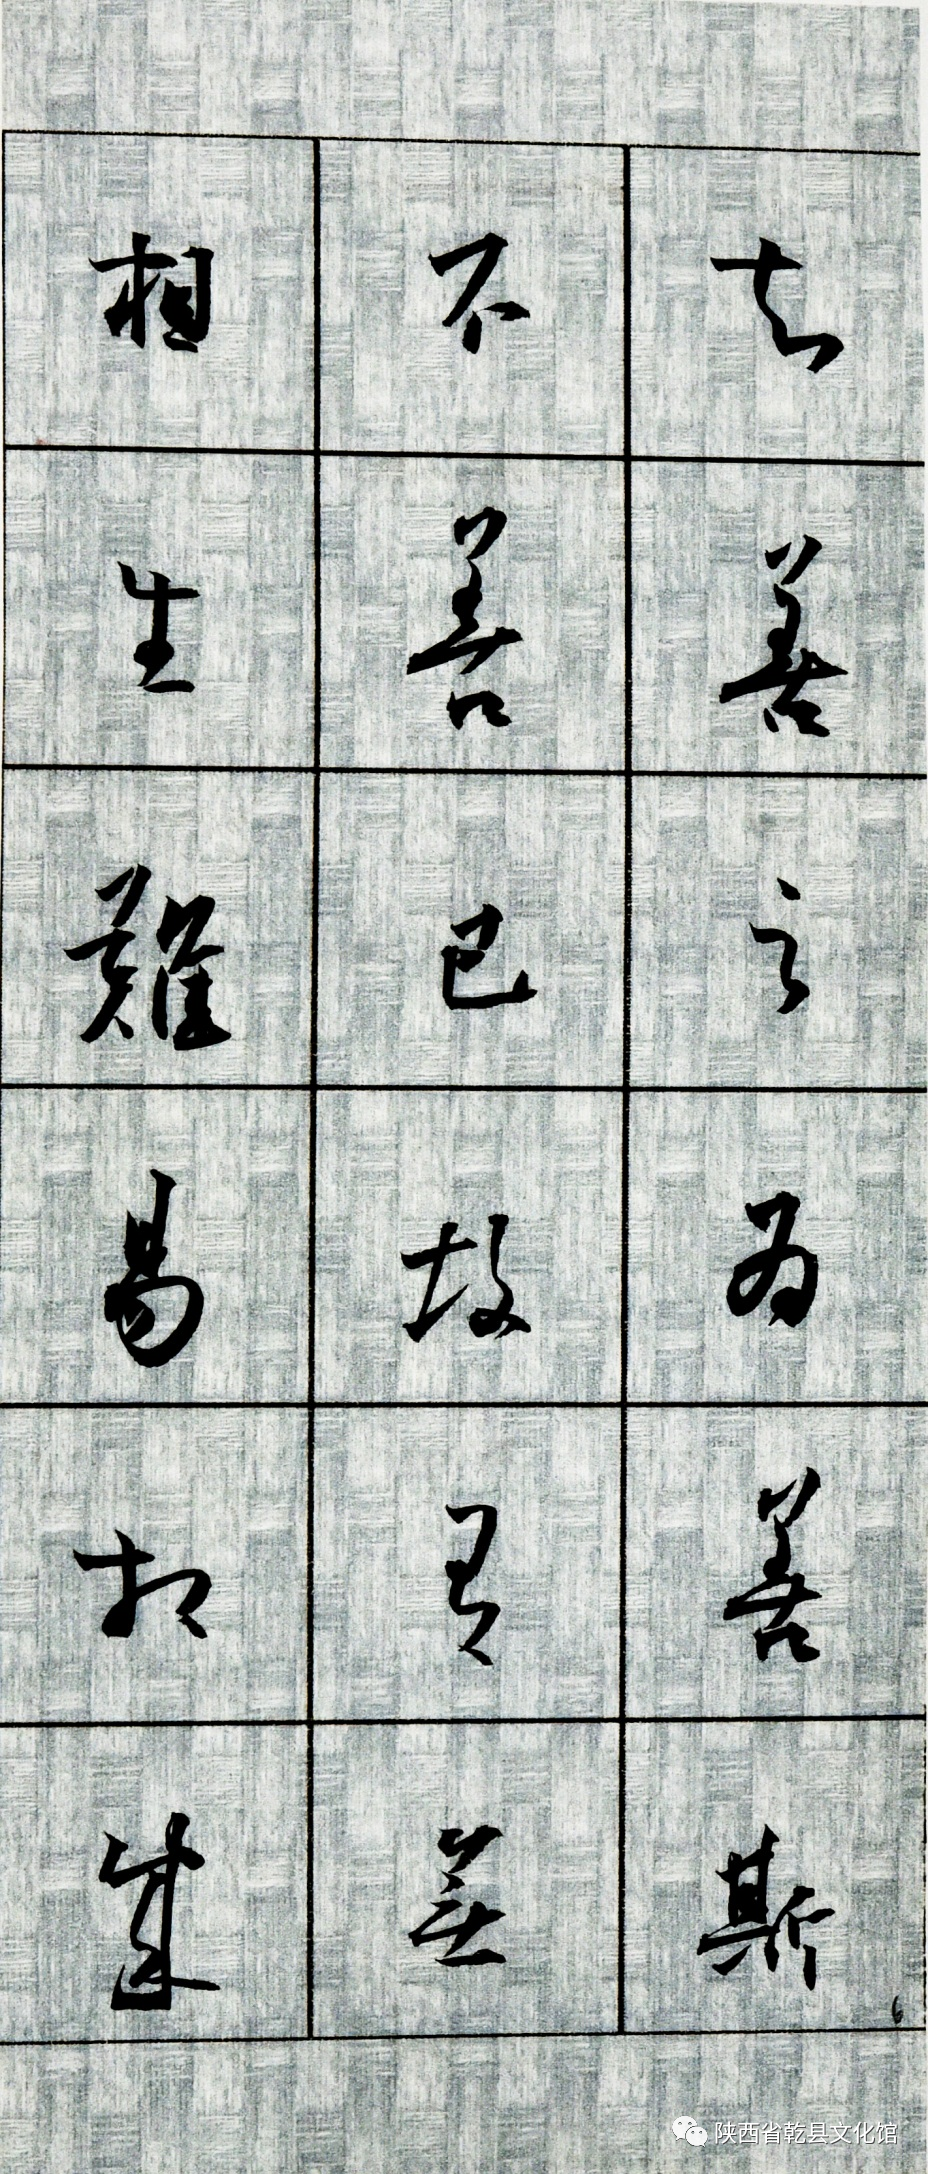 知善之为善斯
不善已故有无
相生难易相成
6
陕西省乾县文化馆